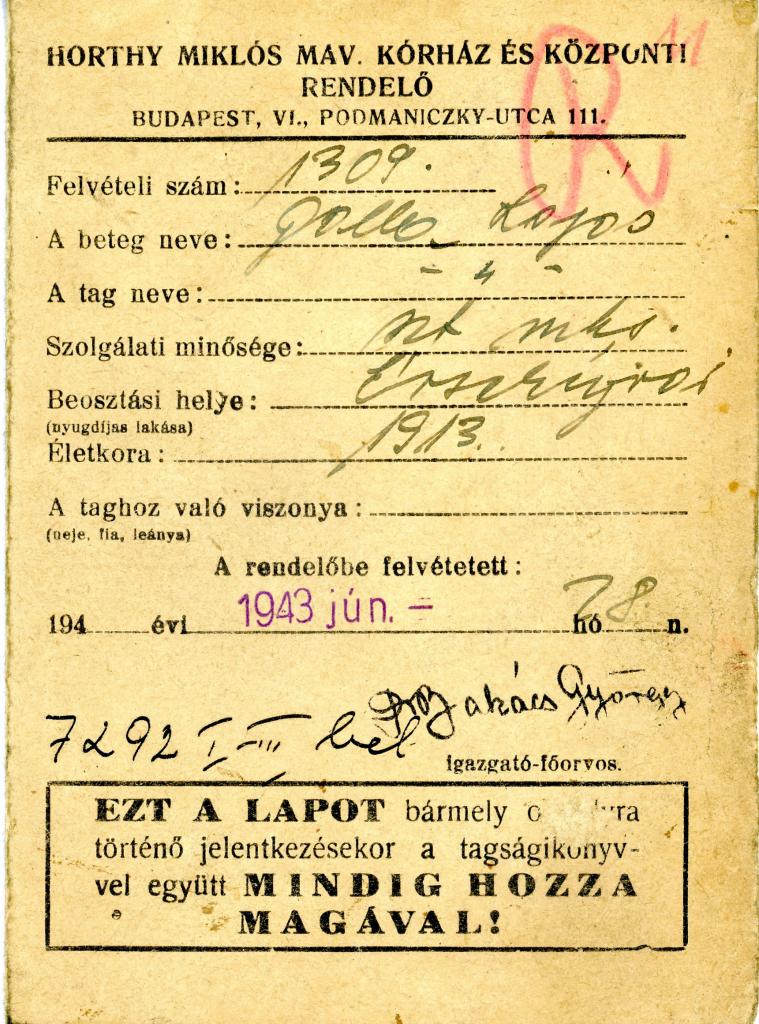 HORTHY MIKLÓS MAV. KÓRHÁZ ÉS KÖZPONTI
RENDELŐ
BUDAPEST, VI., PODMANICZKY-UTCA 111.
R
Felvételi szám: 1309.
A beteg neve: Lajos
A tag neve: - " -
Szolgálati minősége:
Beosztási helye: Érsekújvár
(nyugdíjas lakása)
Életkora: 1913.
A taghoz való viszonya:
(neje, fia, leánya)
A rendelőbe felvétetett:
194 évi 1943 jún. - hó 28 n.
György
7292 I-III bel
igazgató-főorvos.
EZT A LAPOT bármely
történő jelentkezésekor a tagságikönyv-
vel együtt MINDIG HOZZA
MAGÁVAL!